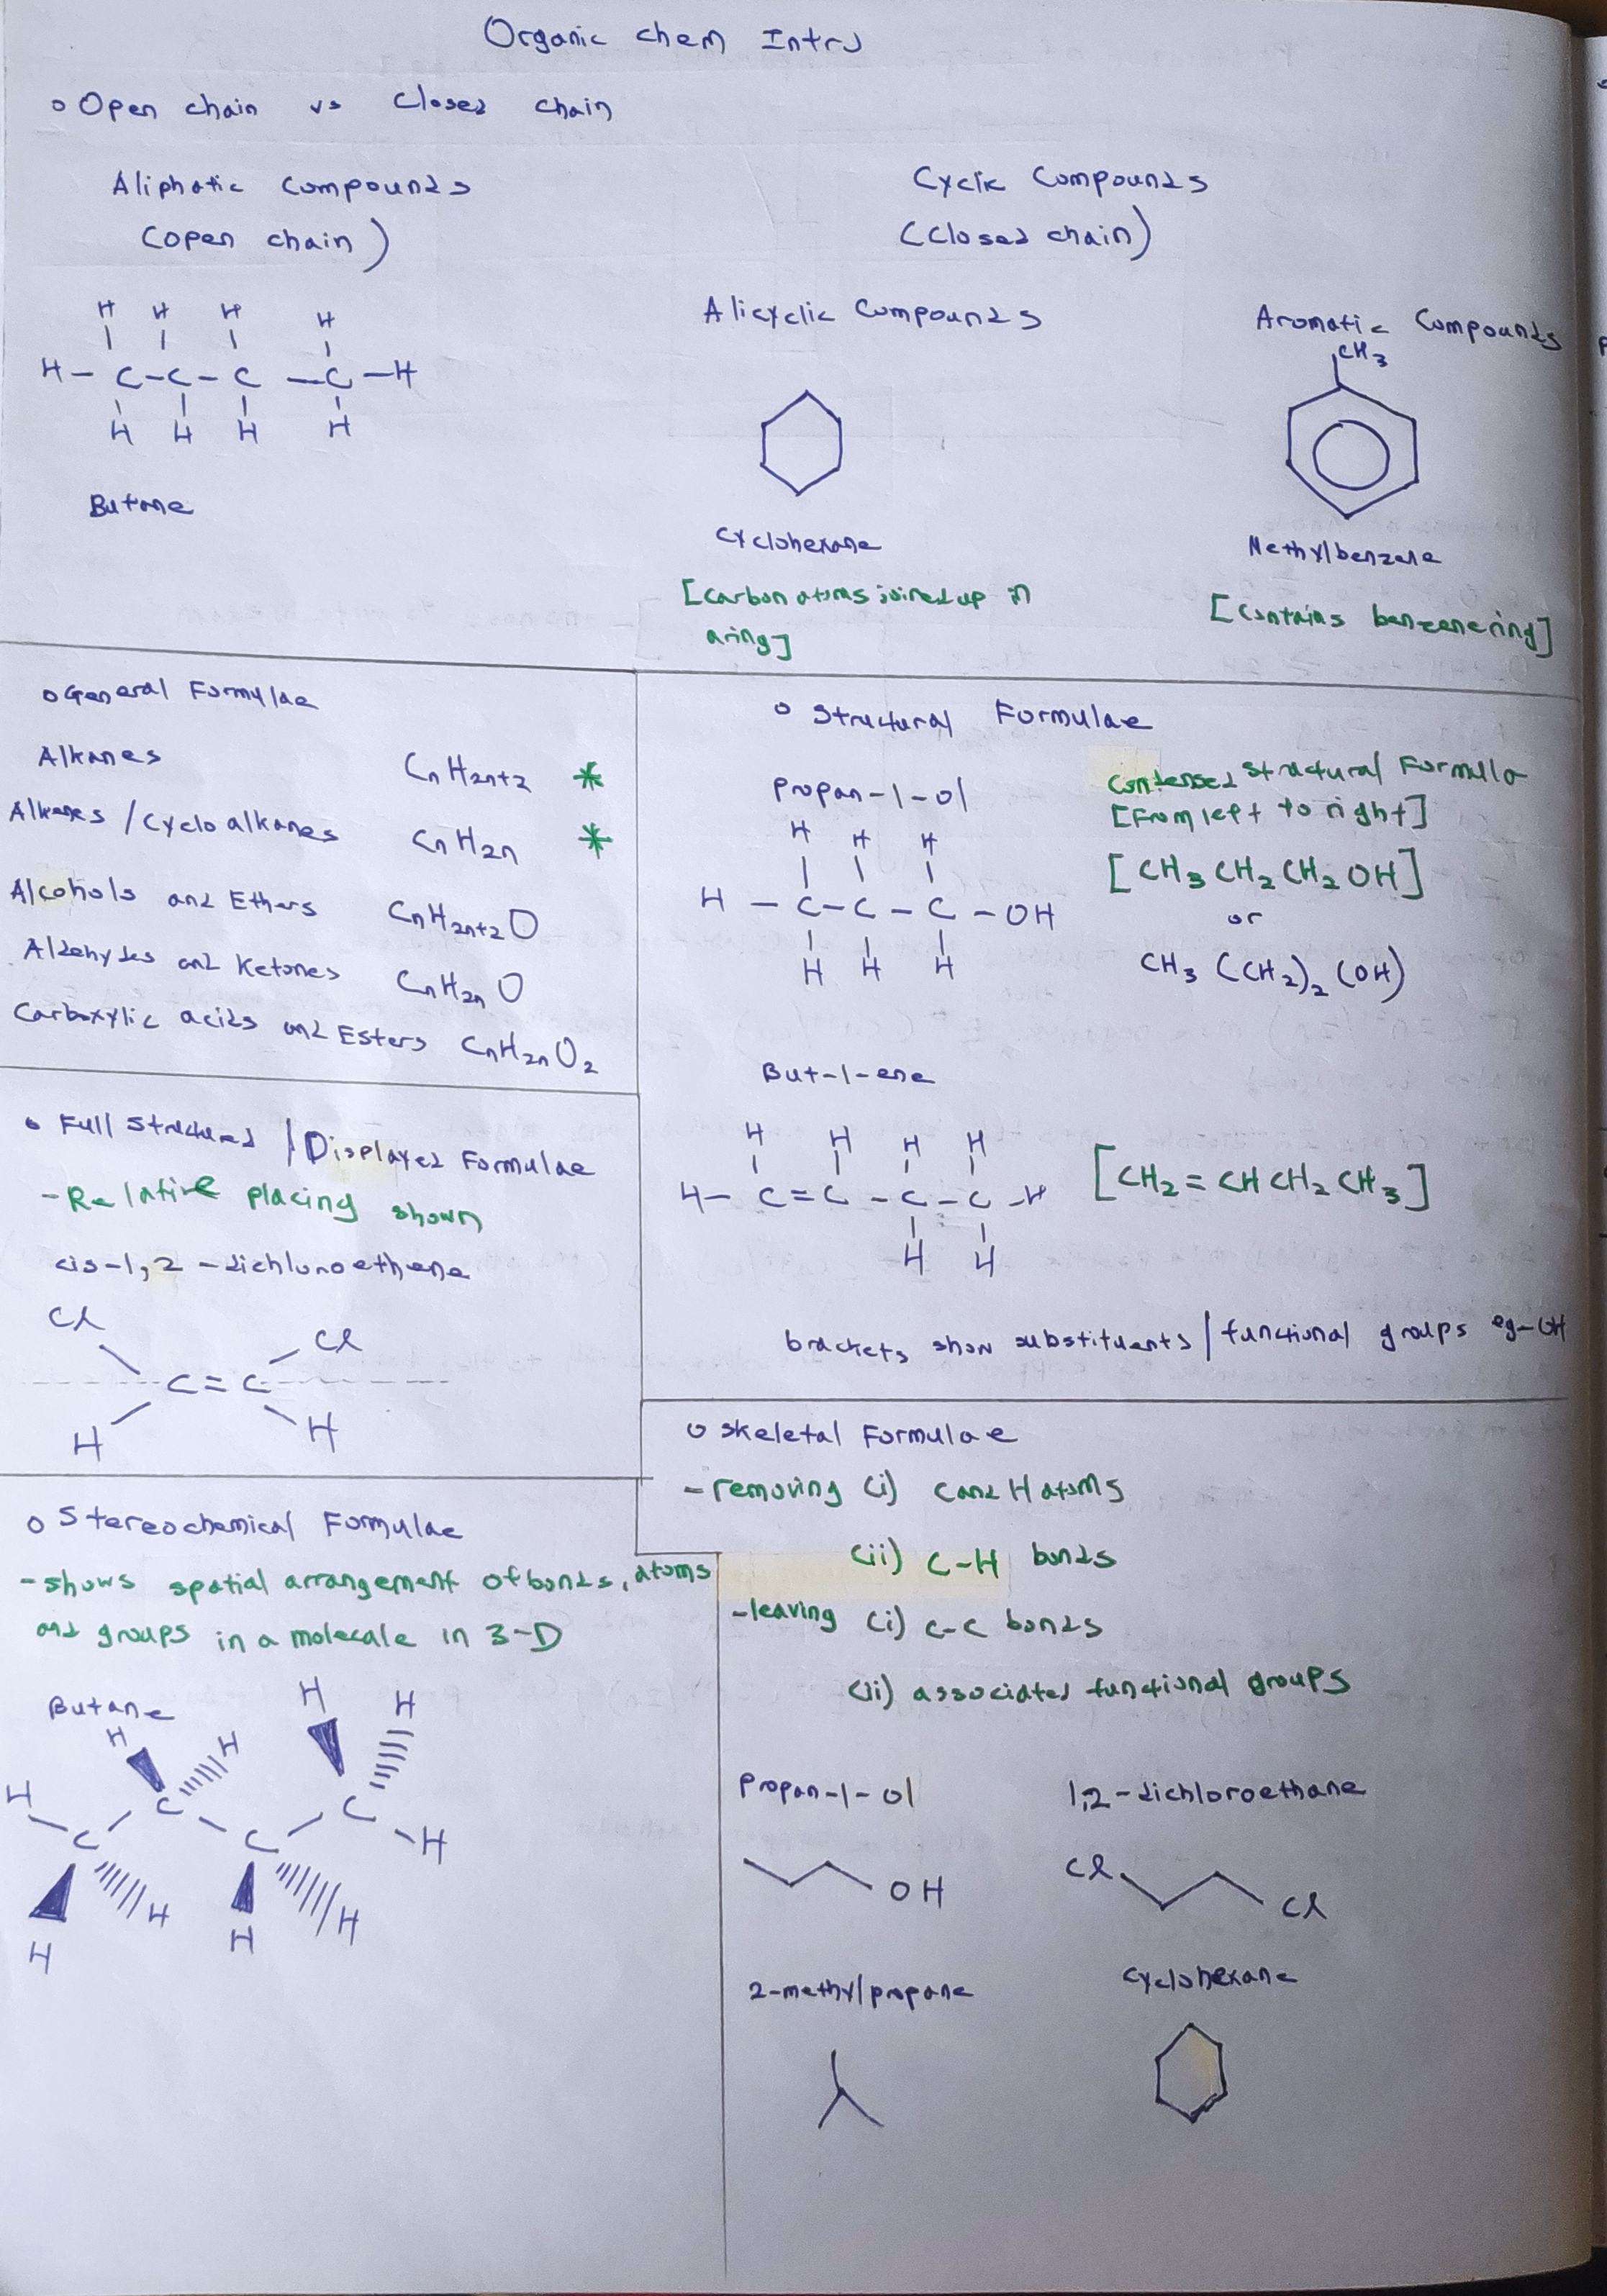 Organic chem Intro
o Open chain vs Closed chain
Aliphatic Compounds
(open chain)
Cyclic Compounds
(Closed chain)
H H H H
H - C - C - C - C - H
H H H H
Butane
Alicyclic Compounds
Cyclohexane
[carbon atoms joined up in
a ring]
Aromatic Compounds
CH3
Methylbenzene
[contains benzene ring]
o General Formulae
Alkanes CnH2n+2 *
Alkenes / Cyclo alkanes CnH2n *
Alcohols and Ethers CnH2n+2O
Aldehydes and Ketones CnH2nO
Carboxylic acids and Esters CnH2nO2
o Structural Formulae
Propan-1-ol
H H H
H - C - C - C - OH
H H H
Condensed Structural Formula
[From left to right]
[CH3 CH2 CH2 OH]
or
CH3 (CH2)2 (OH)
But-1-ene
H H H H
H - C = C - C - C - H
H H
[CH2 = CH CH2 CH3]
brackets show substituents / functional groups eg-OH
• Full Structured / Displayed Formulae
- Relative placing shown
cis-1,2-dichloroethene
Cl Cl
C = C
H H
o Stereochemical Formulae
- shows spatial arrangement of bonds, atoms
and groups in a molecule in 3-D
Butane
H H
H H
H C C
C C H
H H
H H
o Skeletal Formulae
- removing (i) C and H atoms
(ii) C-H bonds
- leaving (i) C-C bonds
(ii) associated functional groups
Propan-1-ol
OH
1,2-dichloroethane
Cl Cl
2-methylpropane
cyclohexane